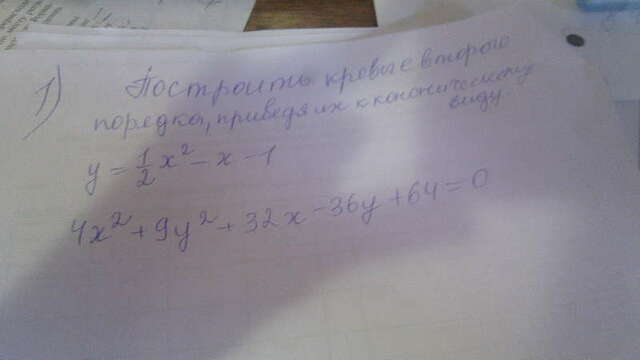 1) Построить кривые второго
порядка, приведя их к каноническому
виду.
y = 1/2 x² - x - 1
4x² + 9y² + 32x - 36y + 64 = 0